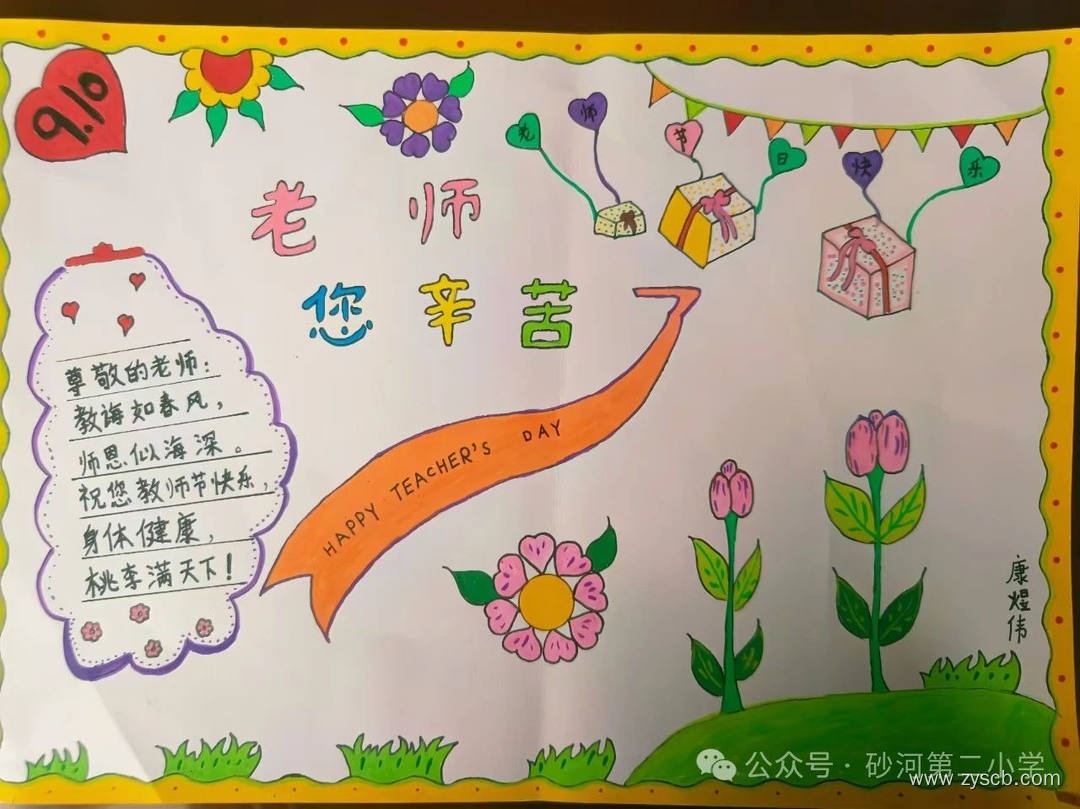 9.10
师节日快乐
老师
您辛苦
尊敬的老师：
教诲如春风，
师恩似海深。
祝您教师节快乐，
身体健康，
桃李满天下！
HAPPY TEACHER'S DAY
康 伟
公众号·砂河第二小学
www.zyscb.com